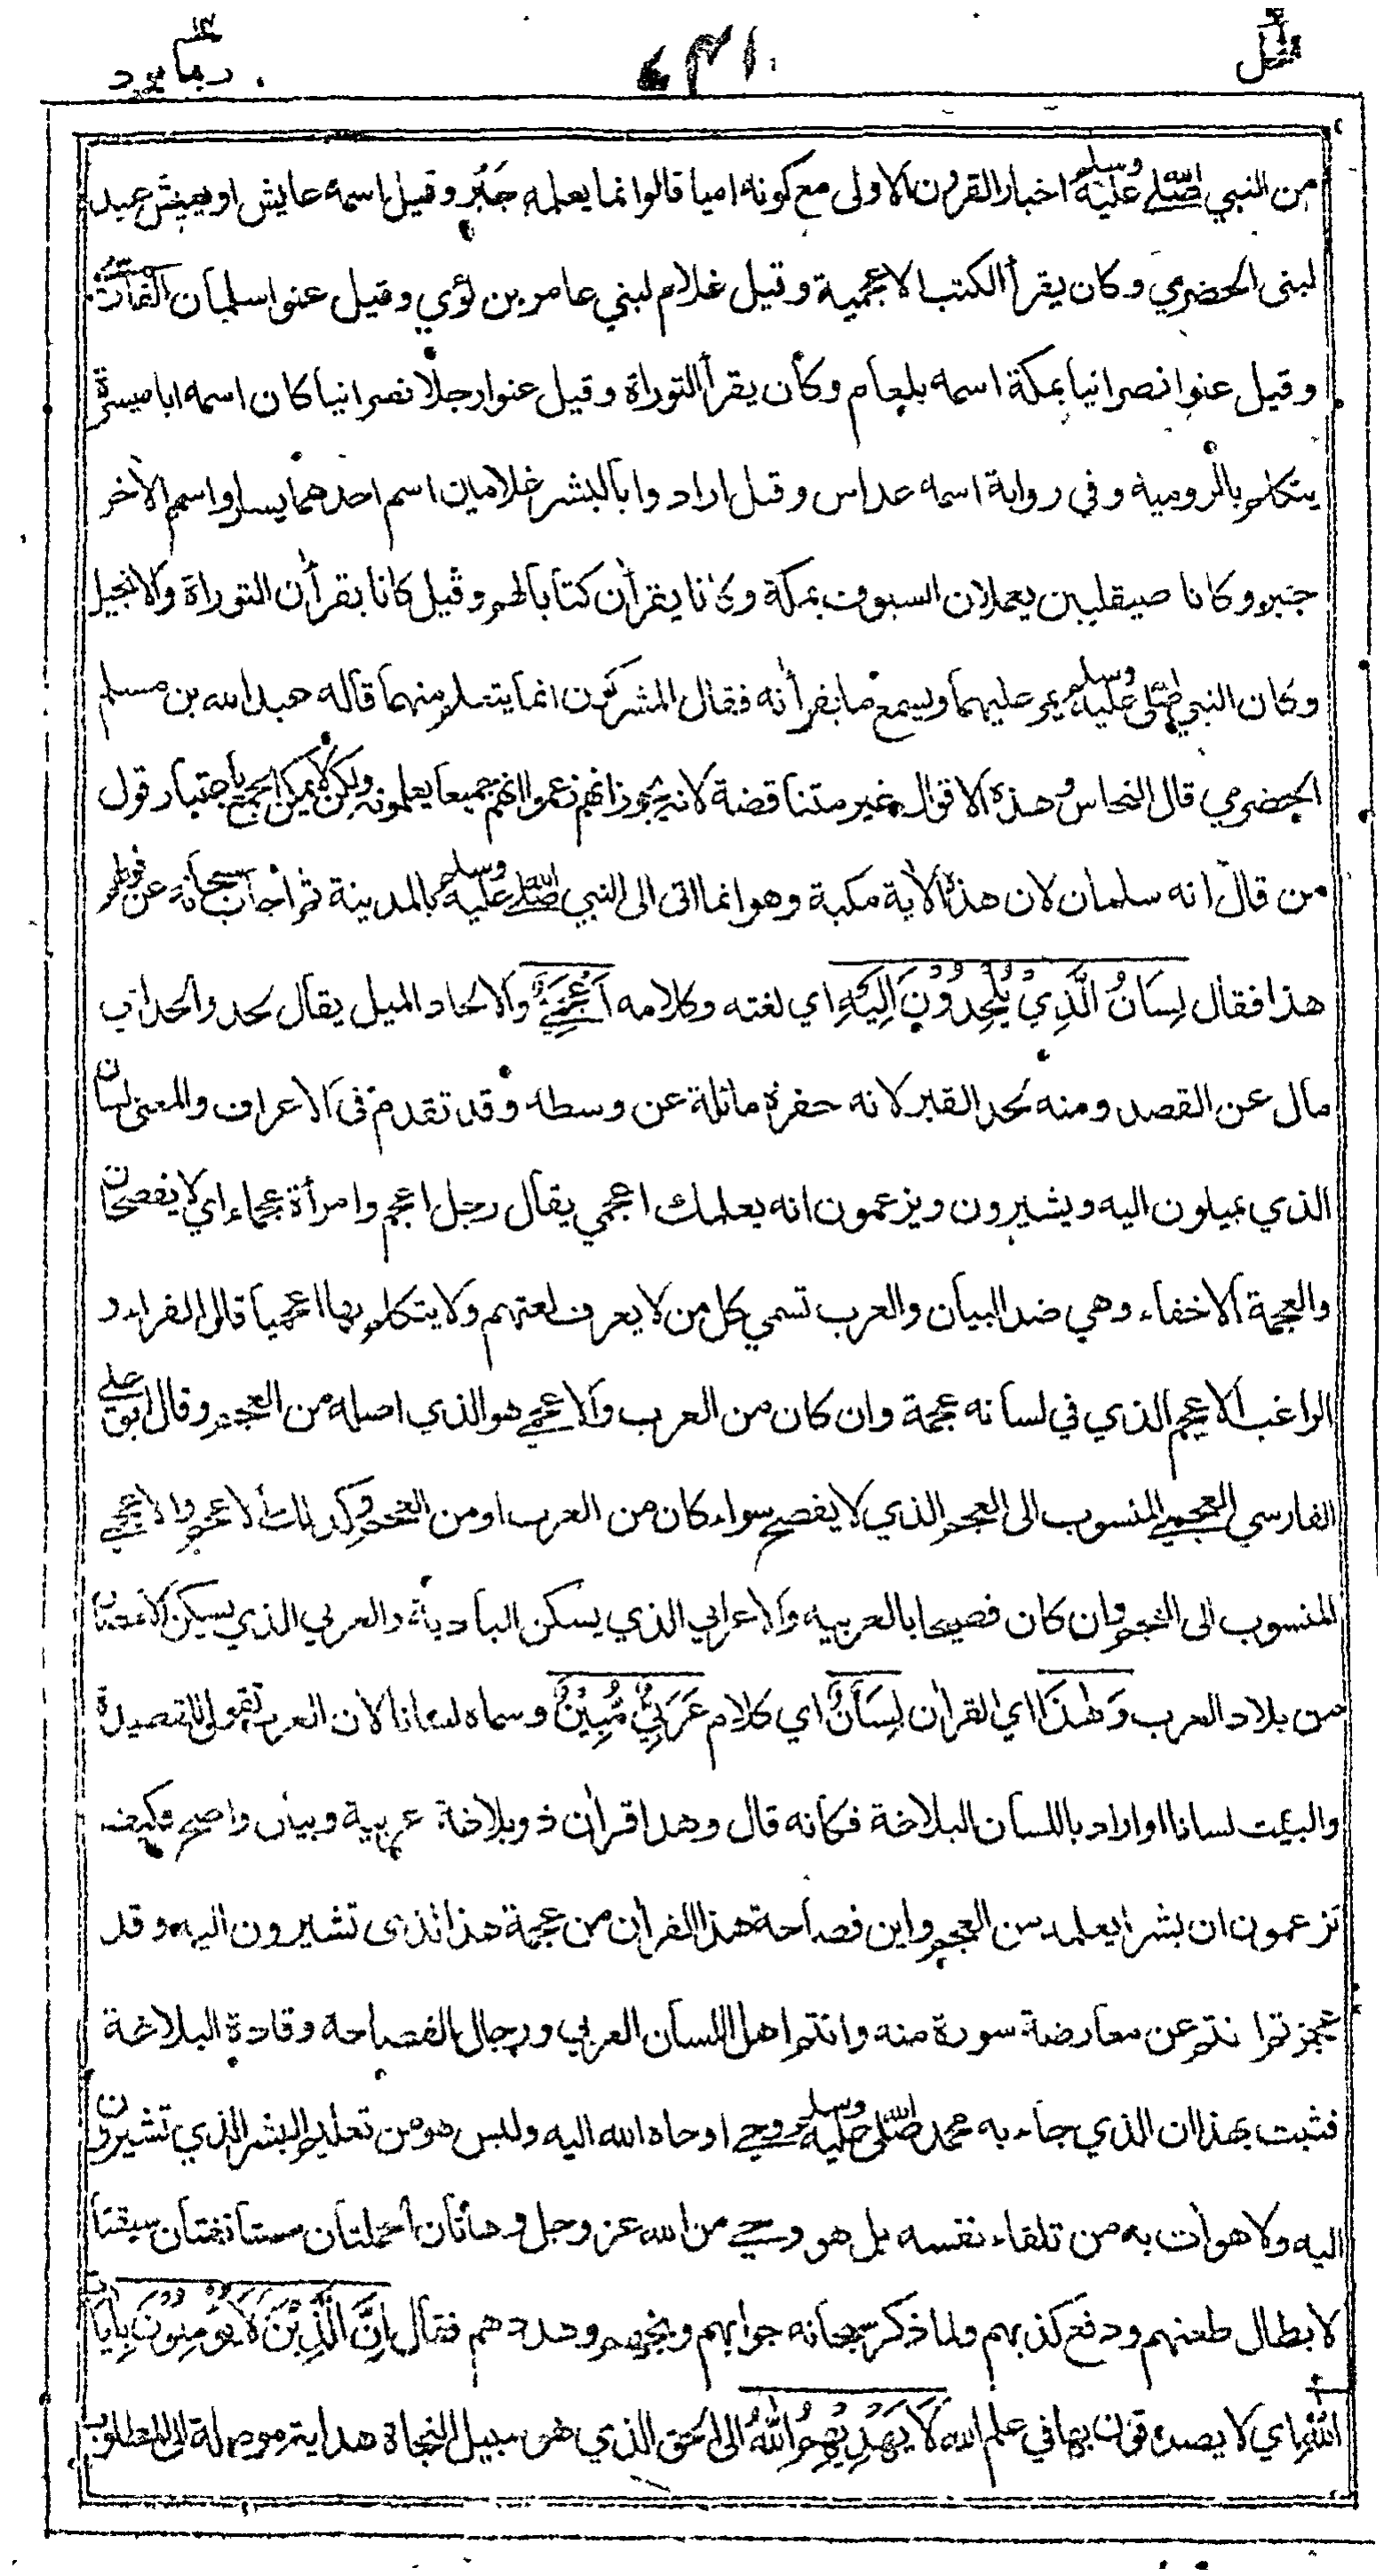 ربما
من النبي صلى الله عليه وسلم اخبار القرون الاولى مع كونه اميا قالوا انما يعلمه جَبْر وقيل اسمه عايش او يعيش عبد
لبنى الحضرمي وكان يقرأ الكتب الاعجمية وقيل غلام لبني عامر بن لؤي وقيل عنوا سلمان الفارسي
وقيل عنوا نصرانيا بمكة اسمه بلعام وكان يقرأ التوراة وقيل عنوا رجلا نصرانيا كان اسمه ابا ميسرة
يتكلم بالرومية وفي رواية اسمه عداس وقيل ارادوا بالبشر غلامين اسم احدهما يسار واسم الاخر
جبر وكانا صيقليين يعملان السيوف بمكة وكانا يقرأن كتابا لهم وقيل كانا يقرأن التوراة والانجيل
وكان النبي صلى الله عليه وسلم يمر عليهما ويسمع ما يقرأنه فقال المشركون انما يتعلم منهما قاله عبد الله بن مسلم
الحضرمي قال النحاس وهذه الاقوال غير متناقضة لانه يجوز انهم زعموا انهم جميعا يعلمونه ولكن لا يمكن الجمع باعتبار قول
من قال انه سلمان لان هذه الأية مكية وهو انما اتى الى النبي صلى الله عليه وسلم بالمدينة ثم اجاب سبحانه عن قولهم
هذا فقال لِسَانُ الَّذِيْ يُلْحِدُوْنَ اِلَيْهِ اي لغته وكلامه اَعْجَمِيٌّ والالحاد الميل يقال لحد والحد اي
مال عن القصد ومنه لحد القبر لانه حفرة مائلة عن وسطه وقد تقدم فى الاعراف والمعنى لسان
الذي يميلون اليه ويشيرون ويزعمون انه يعلمك اعجمي يقال رجل اعجم وامرأة عجماء اي لا يفصحان
والعجمة الاخفاء وهي ضد البيان والعرب تسمي كل من لا يعرف لغتهم ولا يتكلم بها اعجميا قال الفراء و
الراغب الاعجم الذي في لسانه عجمة وان كان من العرب والاعجمي هو الذي اصله من العجم وقال ابو علي
الفارسي العجمي المنسوب الى العجم الذي لا يفصح سواء كان من العرب او من العجم وكذلك الاعجم والاعجمي
المنسوب الى العجم وان كان فصيحا بالعربية والاعرابي الذي يسكن البادية والعربي الذي يسكن الامصار
من بلاد العرب وَهٰذَا اي القرأن لِسَانٌ اي كلام عَرَبِيٌّ مُّبِيْنٌ وسماه لسانا لان العرب تقول للقصيدة
والبيت لسانا او اراد باللسان البلاغة فكانه قال وهذا قرأن ذو بلاغة عربية وبيان واضح فكيف
تزعمون ان بشرا يعلمه من العجم واين فصاحة هذا القرأن من عجمة هذا الذى تشيرون اليه وقد
عجزتم انتم عن معارضة سورة منه وانتم اهل اللسان العربي ورجال الفصاحة وقادة البلاغة
فثبت بهذا ان الذي جاء به محمد صلى الله عليه وسلم وحي اوحاه الله اليه وليس هو من تعليم البشر الذي تشيرون
اليه ولا هو أت به من تلقاء نفسه بل هو وحي من الله عز وجل وهاتان الجملتان مستانفتان سيقتا
لابطال طعنهم ودفع كذبهم ولما ذكر سبحانه جوابهم وبخهم وهددهم فقال اِنَّ الَّذِيْنَ لَا يُؤْمِنُوْنَ بِاٰيَاتِ
اللهِ اي لا يصدقون بها في علم الله لَا يَهْدِيْهِمُ اللهُ الى الحق الذي هو سبيل النجاة هداية موصلة الى المطلوب